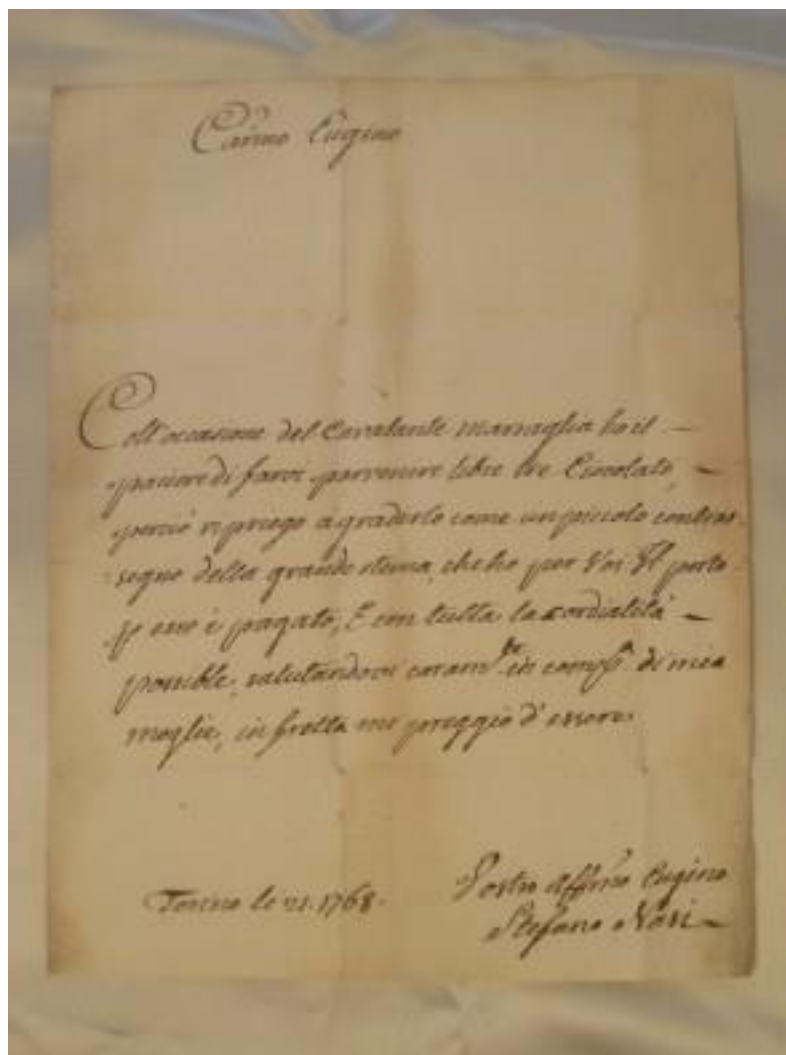 Carmo Cugino
Coll'occasione del Cavalante marsaglia ho il —
piacere di farvi pervenire libre tre Ciocolato, —
perciò vi priego agradirlo come un piccolo contras-
segno della grande stima, che ho per Voi Il porto
p esso è pagato, E con tutta la cordialità —
possibile, salutandovi caram.te in comp.a di mia
moglie, in fretta mi preggio d'essere
Torino le 21. 1768.
Vostro Affmo Cugino
Stefano Nasi